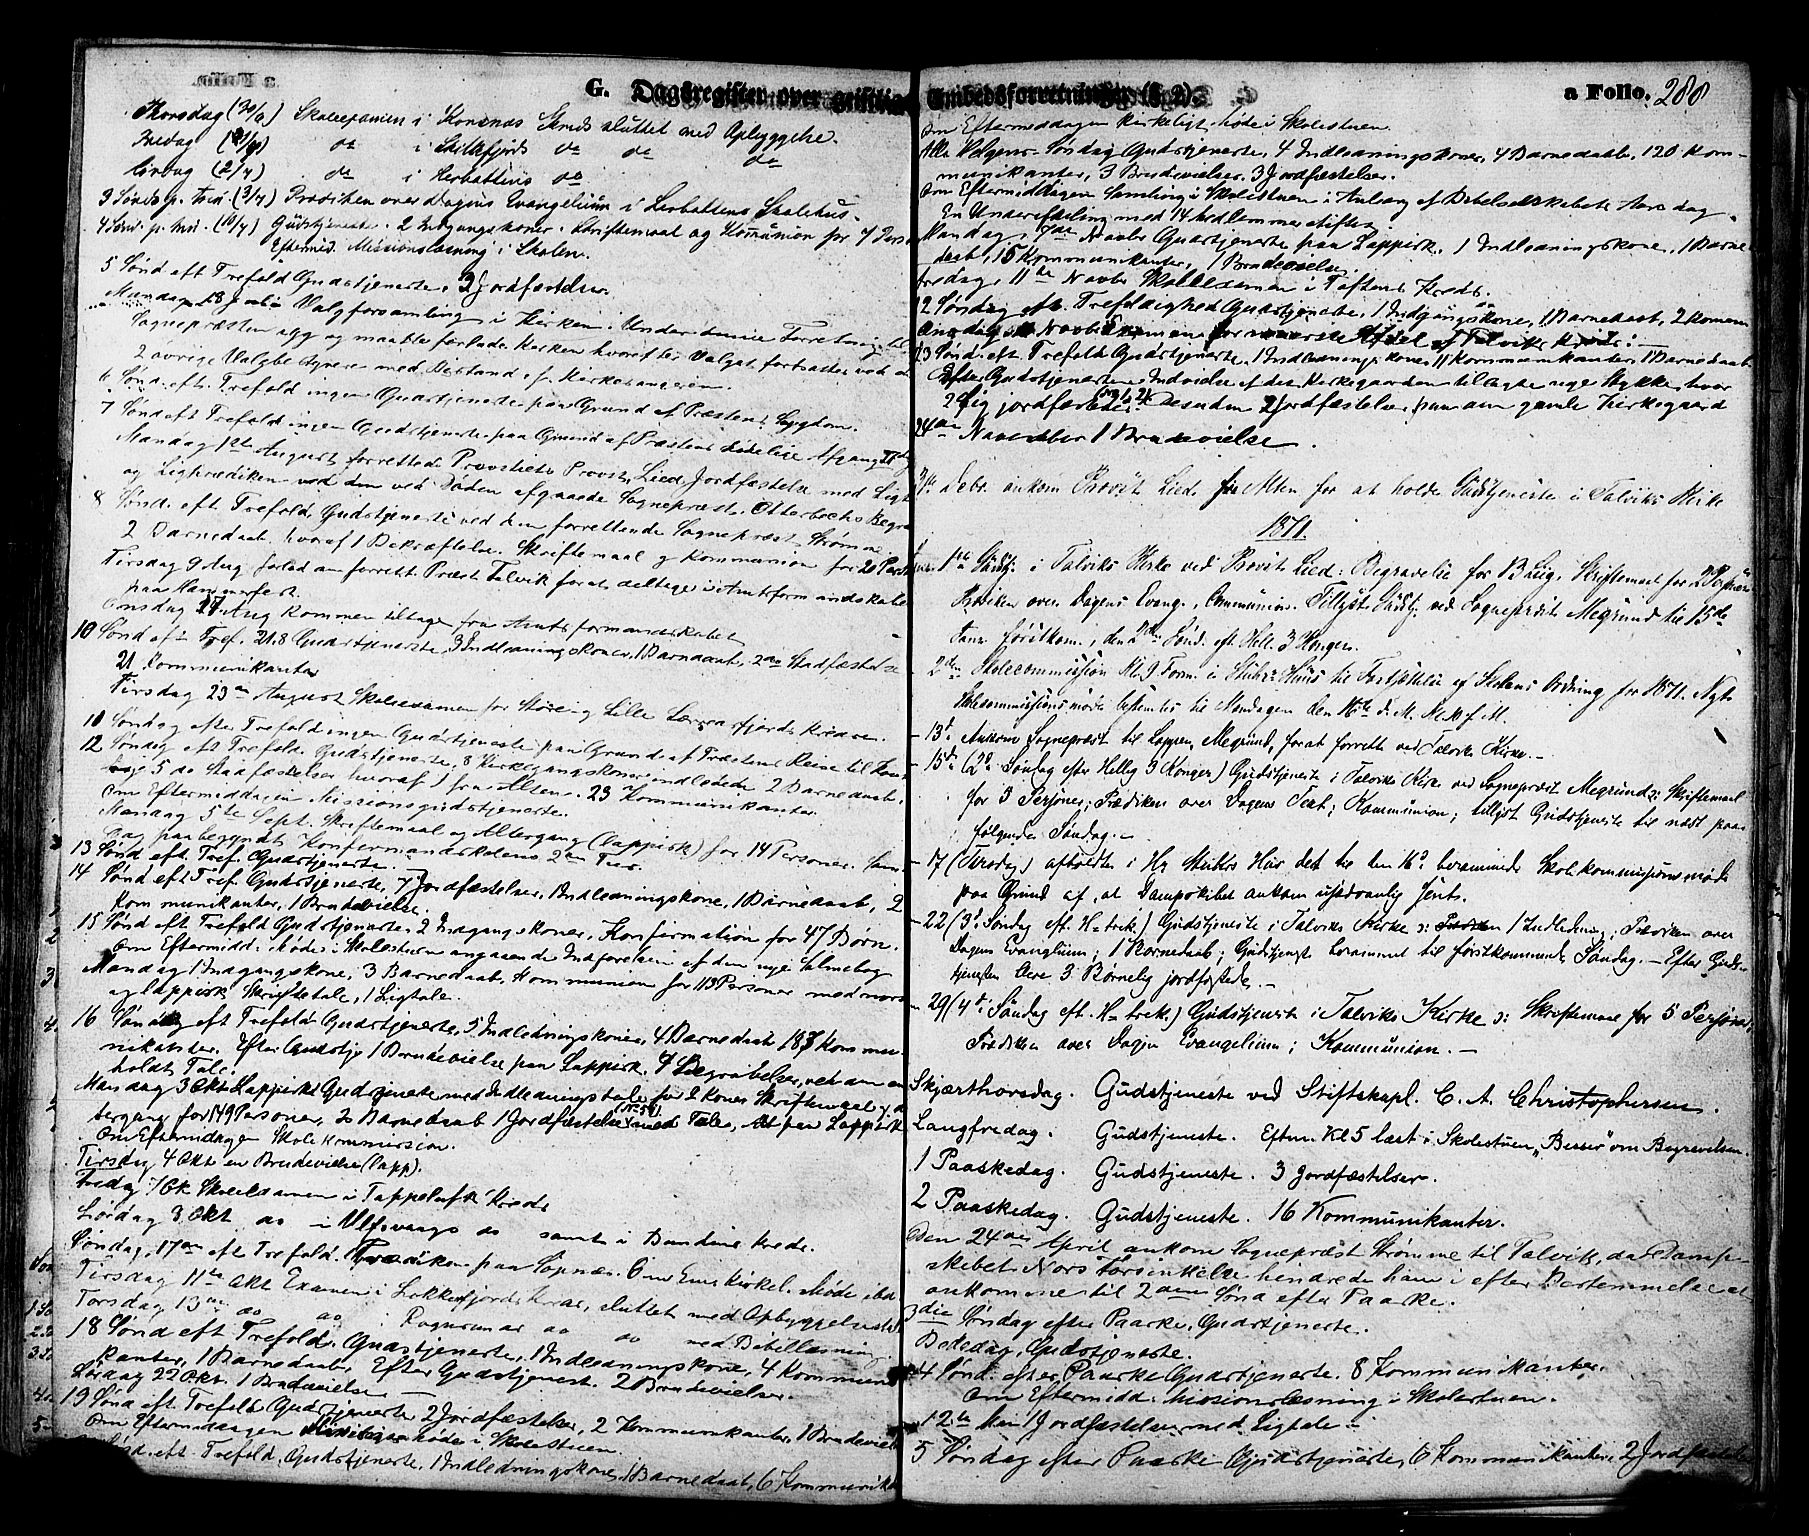 G. Dagsregister over geistlige Embedsforretninger (§ 2).
a Folio. 288
Thorsdag (30/6) Skoleexamen i Korsnæs Kreds sluttet med Opbyggelse.
Fredag (1/7) do i Skillefjords do do do
Lördag (2/7) do i Lerbottens do
3 Sönd. p. Trin. (3/7) Prædiken over Dagens Evangelium i Lerbottens Skolehus.
4 Sönd. p. Trin. (10/7) Gudstjeneste. 2 Indgangskoner. Skriftemaal og Kommunion for 7 Pers
Eftermid. Missionslæsning i Skolen.
5 Sönd eft Trefold Gudstjeneste. 3 Jordfæstelser.
Mandag 18 Juli Valgforsamling i Kirken. Under denne Forretning til
Sognepræsten syg og maatte forlade Kirken hvorefter Valget fortsattes ved de
2 övrige Valgbestyrere med Bistand af Kirkesangeren.
6 Sönd. eft. Trefold ingen Gudstjeneste paa Grund af Præstens Sygdom.
7 Sönd eft Trefold ingen Gudstjeneste paa Grund af Præstens dödelige Afgang
Mandag 1ste August forrettede Provstiets Provst, Lied, Jordfæstelse med Ligt
og Ligprædiken ved den ved Döden afgaaede Sognepræst Otterbechs Begra
8 Sönd. eft Trefold. Gudstjeneste ved den forrettende Sognepræst Strömme
2 Barnedaab hvoraf 1 Bekræftelse. Skriftemaal og Kommunion for 20 Pers
Tirsdag 9 Aug forlod den forrett. Præst Talvik for at deltage i Amtsformandskabet
paa Hammerfest.
Onsdag 17 Aug kommen tilbage fra Amtsformandskabet
10 Sönd eft Tref. 21.8 Gudstjeneste, 3 Indledningskoner, 1 Barnedaab, 2 Stadfæstelse
21 Kommunikanter
Tirsdag 23 August Skoleexamen for Store og Lille Lerresfjords Kredse.
11 Söndag efter Trefold ingen Gudstjeneste paa Grund af Præstens Reise til
12 Söndag eft Trefold. Gudstjeneste, 8 Kirkegangskoner indledede 2 Barnedaab,
5 do Stadfæstelser hvoraf 1 fra Alten. 23 Kommunikanter
Om Eftermiddagen Missionsgudstjeneste.
Mandag 5te Sept. Skriftemaal og Altergang (lappisk) for 14 Personer. Sam
Dag paabegyndt Konfirmandskolens 2den Tur.
13 Sönd. eft. Tref. Gudstjeneste.
14 Sönd eft Tref. Gudstjeneste, 7 Jordfæstelser, 1 Indledningskone, 1 Barnedaab, 2
Kommunikanter, 1 Brudevielse.
15 Sönd eft Trefold Gudstjeneste 2 Indgangskoner, Konfirmation for 47 Börn.
Om Eftermidd. Möde i Skolestuen angaaende Indförelsen af den nye Salmebog
Mandag 1 Indgangskone, 3 Barnedaab, Kommunion for 113 Personer med norsk
og lappisk Skriftetale, 1 Ligtale.
16 Söndag eft Trefold Gudstjeneste, 5 Indledningskoner, 4 Barnedaab 187 Kommu
nikanter. Efter Gudstje 1 Brudevielse paa Lappisk. 4 Begravelser, ved den en
holdt Tale.
Mandag 3 Okt Lappisk Gudstjeneste med Indledningstale for 2 Koner Skriftemaal og Al
tergang for 149 Personer, 2 Barnedaab 1 Jordfæstelse med Tale, Alt paa Lappisk
Om Eftermidagen Skolekommission.
Tirsdag 4 Okt en Brudevielse (lapp).
Fredag 7 Ok Skoleexamen i Tappeluft Kreds
Lördag 8 Okt do i Ulfsvaags do samt i Bundens Kreds.
Söndag, 17de eft Trefold. Prædiken paa Sopnæs. Om Ems kirkel. Möde ibd
Tirsdag 11te Okt Examen i Lokkefjords Kreds, sluttet med Opbyggelsestale
Torsdag 13de do do i Rognsunds do do med Bibellæsning.
18 Sönd eft Trefold. Gudstjeneste, 1 Indledningskone, 4 Kommuni
kanter, 1 Barnedaab. Efter Gudstjenest. 2 Brudevielser.
Lördag 22 Okt. 1 Brudevielse
19 Sönd eft. Trefold Gudstjeneste 2 Jordfæstelser, 2 Kommunikanter, 1 Brudeviel
Om Eftermiddagen Missionsmöde i Skolestuen.
Sönd. eft. Trefold, Gudstjeneste, 1 Indledningskone, 1 Barnedaab, 6 Kommunika
Om Eftermeddagen Kirkeligt Möde i Skolestuen
Alle Helgens Söndag Gudstjeneste, 4 Indledningskoner, 4 Barnedaab, 120 Kom-
munikanter, 3 Brudevielser. 3 Jordfæstelser.
Om Eftermiddagen Samling i Skolestuen i Anledng af Bibelselskabets Aarsdag.
En Underafdeling med 14 Medlemmer stiftet
Mandag, 7de Novbr Gudstjeneste paa Lappisk. 1 Indledningskone, 1 Barne
daab, 15 Kommunikanter, 1 Brudevielse.
Fredag, 11te Novbr Skoleexamen i Toftens Kreds.
22 Söndag eft. Trefoldighed Gudstjeneste, 1 Indgangskone, 1 Barnedaab, 2 Kommu
Onsdag Novbr Examen for nærmeste Kreds.
23 Sönd. eft. Trefold Gudstjeneste, 1 Indledningskone, 11 Kommunikanter, 1 Barnedaab
Efter Gudstjenesten Indvielse af det Kirkegaarden tillagte nye Stykke, hvor
2 Lig jordfæstede. Desuden 2 Jordfæstelser paa den gamle Kirkegaard
24de November 1 Brudevielse.
31te Debr. ankom Provst Lied fra Alten for at holde Gudstjeneste i Talviks Kirke
1871.
1ste Gudstj. i Talviks Kirke ved Provst Lied: Begravelse for 1 Lig, Skriftemaal for 2 Personer
Prædiken over Dagens Evang., Communion. Tillyst Gudstj. ved Sognepræst Megrund til 15de
Janr. förstkom., den 2den Sönd. eft. Hell. 3 Konger.
2den Skolecommission Kl. 9 Form. i Stuhrs Huus til Fastsættelse af Skolens Ordning for 1871. Nyt
Skolecommissionsmöde bestemtes til Mandagen den 16de d. M. Kl. 9 f. M.
- 13d. Ankom Sognepræst til Loppen, Megrund, for at forrette ved Talviks Kirke. -
- 15de (2d Söndag efter Hellig 3 Konger) Gudstjeneste i Talviks Kirke ved Sognepræst Megrund: Skriftemaal
for 3 Personer; Prædiken over Dagens Text; Kommunion; tillyst Gudstjeneste til næst paa-
fölgende Söndag. -
- 17 (Tirsdag) afholdtes i Hr Stuhrs Hus det til den 16d berammede Skolekommissionsmöde
paa Grund af, at Dampskibet ankom usædvanlig sent.
- 22 (3d Söndag eft. H. 3 k.) Gudstjeneste i Talviks Kirke ɔ: 1 Indledning, Prædiken over
Dagens Evangelium; 1 Barnedaab; Gudstjeneste berammet til förstkommende Söndag. - Efter Guds-
tjenesten bleve 3 Börnelig jordfæstede. -
- 29 (4d Söndag eft. H. 3 k.) Gudstjeneste i Talviks Kirke ɔ: Skriftemaal for 5 Personer,
Prædiken over Dagens Evangelium; Kommunion. -
Skjærthorsdag. Gudstjeneste ved Stiftskapl. C. A. Christophersen.
Langfredag. Gudstjeneste. Eftm. Kl 5 læst i Skolestuen „Besser" om Begravelsen.
1 Paaskedag. Gudstjeneste. 3 Jordfæstelser.
2 Paaskedag. Gudstjeneste. 16 Kommunikanter.
Den 24de April ankom Sognepræst Strömme til Talvik, da Damp-
skibet Nors Forsinkelse hindrede ham i efter Bestemmelse at
ankomme til 2den Sönd efter Paaske.
3die Söndag efter Paaske, Gudstjeneste.
Bededag, Gudstjeneste.
4 Sönd. efter Paaske Gudstjeneste. 8 Kommunikanter,
Om Eftermidd. Missionslæsning i Skolestuen.
12te Mai 1 Jordfæstelse med Ligtale
5 Söndag efter Paaske Gudstjeneste, 6 Kommunikanter, 2 Jordfæstels